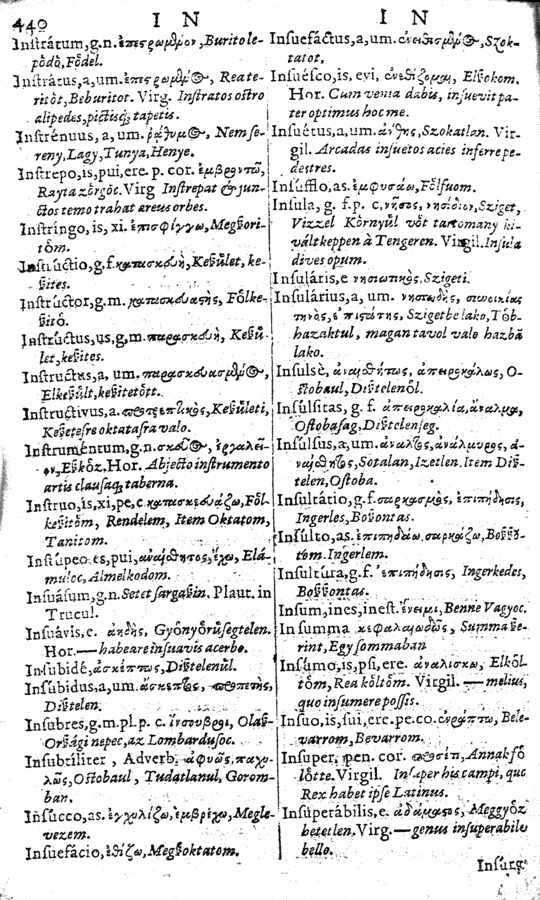 440 I N I N
Instrátum, g.n. ἐπιστρωμθμον, Buritole-
pôdô, Fôdel.
Instrátus, a, um. Reáte-
ritôt, Beburitot. Virg. Instratos ostro
alipedes, pictisq; tapetis.
Instrénuus, a, um. ῥάθυμ@, Nem se-
reny, Lagy, Tunya, Henye.
Instrepo, is, pui, ere. p. cor.
Rayta zôrgôc. Virg Instrepat & jun-
ctos temo trahat æreus orbes.
Instringo, is, xi. ἐπισφίγγω, Megßori-
tôm.
Instrúctio, g.f. κατασκευὴ, Keßûlet, ke-
ßites.
Instrúctor, g.m. Fôlke-
ßitô.
Instrúctus, us, g.m. παρασκευὴ, Keßû-
let, keßites.
Instrúctus, a, um.
Elkeßûlt, keßitetôtt.
Instructivus, a. Keßûleti,
Keßetesre oktatasra valo.
Instruméntum, g.n.
Eßkôz, Hor. Abjecto instrumento
artis clausaq; taberna.
Instruo, is, xi, pe, c. κατασκευάζω, Fôl-
keßitôm, Rendelem, Item Oktatom,
Tanitom.
Instúpeo, es, pui, Elá-
muloc, Almelkodom.
Insuásum, g.n. Setet sargaßin. Plaut. in
Trucul.
Insuávis, c. ἀηδὴς, Gyônyôrûsegtelen.
Hor.—habeare insuavis acerbo.
Insubidé, ἀσκέπτως, Dißtelenûl.
Insubidus, a, um.
Dißtelen.
Insubres, g.m. pl. p. c. Olaß-
Orßági nepec, az Lombardusoc.
Insubtíliter, Adverb.
Ostobaul, Tudatlanul, Gorom-
ban.
Insucco, as. Megle-
vezem.
Insuefácio, ἐθίζω, Megßoktatom.
Insuefáctus, a, um. Szok-
tatot,
Insuésco, is, evi, Elßokom.
Hor. Cum venia dabis, insuevit pa-
ter optimus hoc me.
Insuétus, a, um. ἀήθης, Szokatlan. Vir-
gil. Arcadas insuetos acies inferre pe-
destres.
Insúfflo, as. ἐμφυσάω, Fôlfuom.
Insula, g. f. p. c. νῆσος, νησίδιον, Sziget,
Vizzel Kôrnyûl vôt tartomany ki-
váltkeppen à Tengeren. Virgil. Insula
dives opum.
Insuláris, e νησιωτικὸς, Szigeti.
Insulárius, a, um.
Szigetbe lako, Tôb-
hazaktul, magan tavol valo hazba
lako.
Insulsè, O-
stobaul, Dißtelenôl.
Insúlsitas, g. f. ἀπειροκαλία,
Ostobasag, Dißtelenseg.
Insúlsus, a, um.
Sotalan, Izetlen. Item Diß-
telen, Ostoba.
Insultátio, g.f. σαρκασμὸς, ἐπιπήδησις,
Ingerles, Boßontas.
Insúlto, as. ἐπιπηδάω, σαρκάζω, Boßßô-
tom. Ingerlem.
Insultúra, g.f. ἐπιπήδησις, Ingerkedes,
Boßßontas.
Insum, ines, inest. ἔνειμι, Benne Vagyoc.
Insumma κεφαλαιωδῶς, Summa ße-
rint, Egy sommaban
Insúmo, is, psi, ere. ἀναλίσκω, Elkôl-
tôm, Rea kôltôm. Virgil.—melius,
quo insumere possis.
Insuo, is, sui, ere. pe. co. ἐνράπτω, Bele-
varrom, Bevarrom.
Insuper, pen. cor. Annak fô
lôtte. Virgil. Insuper his campi, quc
Rex habet ipse Latinus.
Insuperábilis, e. ἀδάμαστος, Meggyôz
hetetlen. Virg.—genus insuperabile
bello.
Insurg-